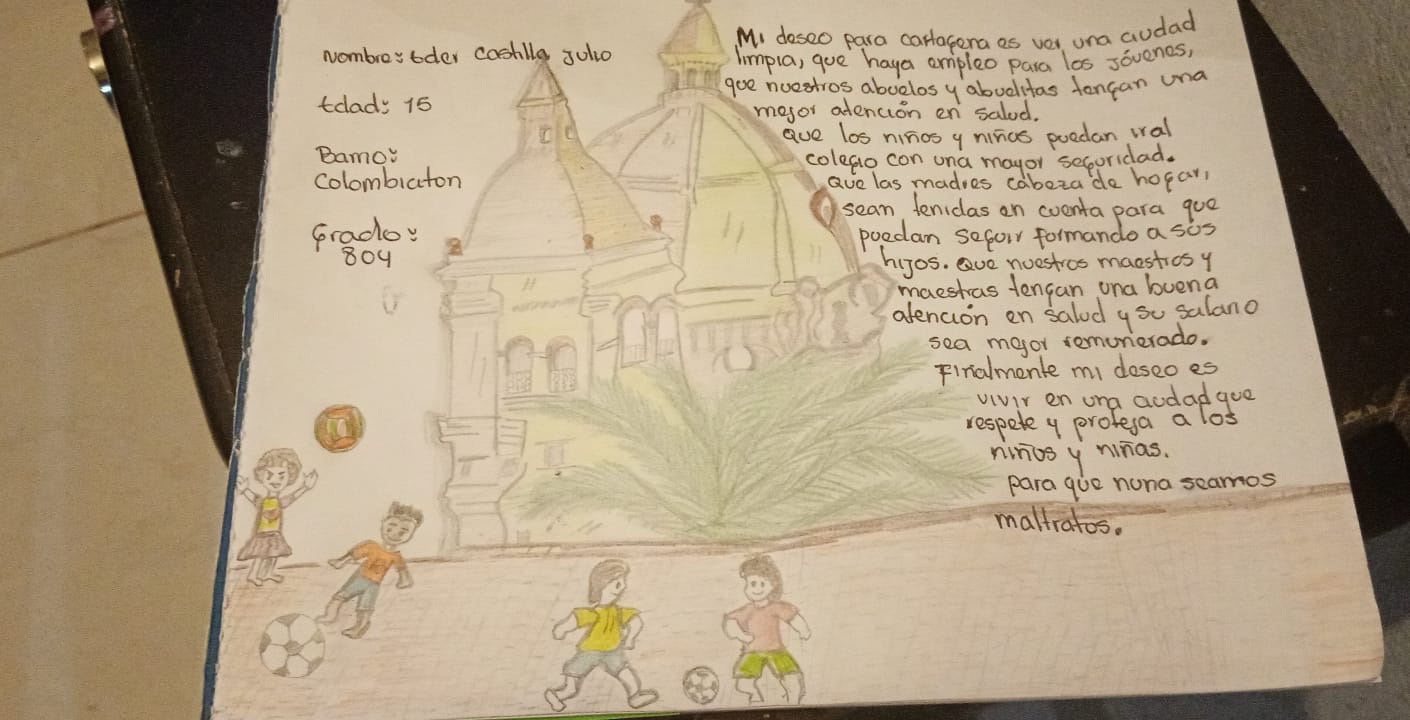 Nombre: Eder Castilla Julio
Edad: 15
Barrio:
Colombiaton
Grado:
804
Mi deseo para cartagena es ver una ciudad
limpia, que haya empleo para los Jóvenes,
que nuestros abuelos y abuelitas tengan una
mejor atención en salud.
Que los niños y niñas puedan ir al
colegio con una mayor seguridad.
Que las madres cabeza de hogar,
sean tenidas en cuenta para que
puedan seguir formando a sus
hijos. Que nuestros maestros y
maestras tengan una buena
atención en salud y su salario
sea mejor remunerado.
Finalmente mi deseo es
vivir en una ciudad que
respete y proteja a los
niños y niñas.
para que nuna seamos
maltratos.